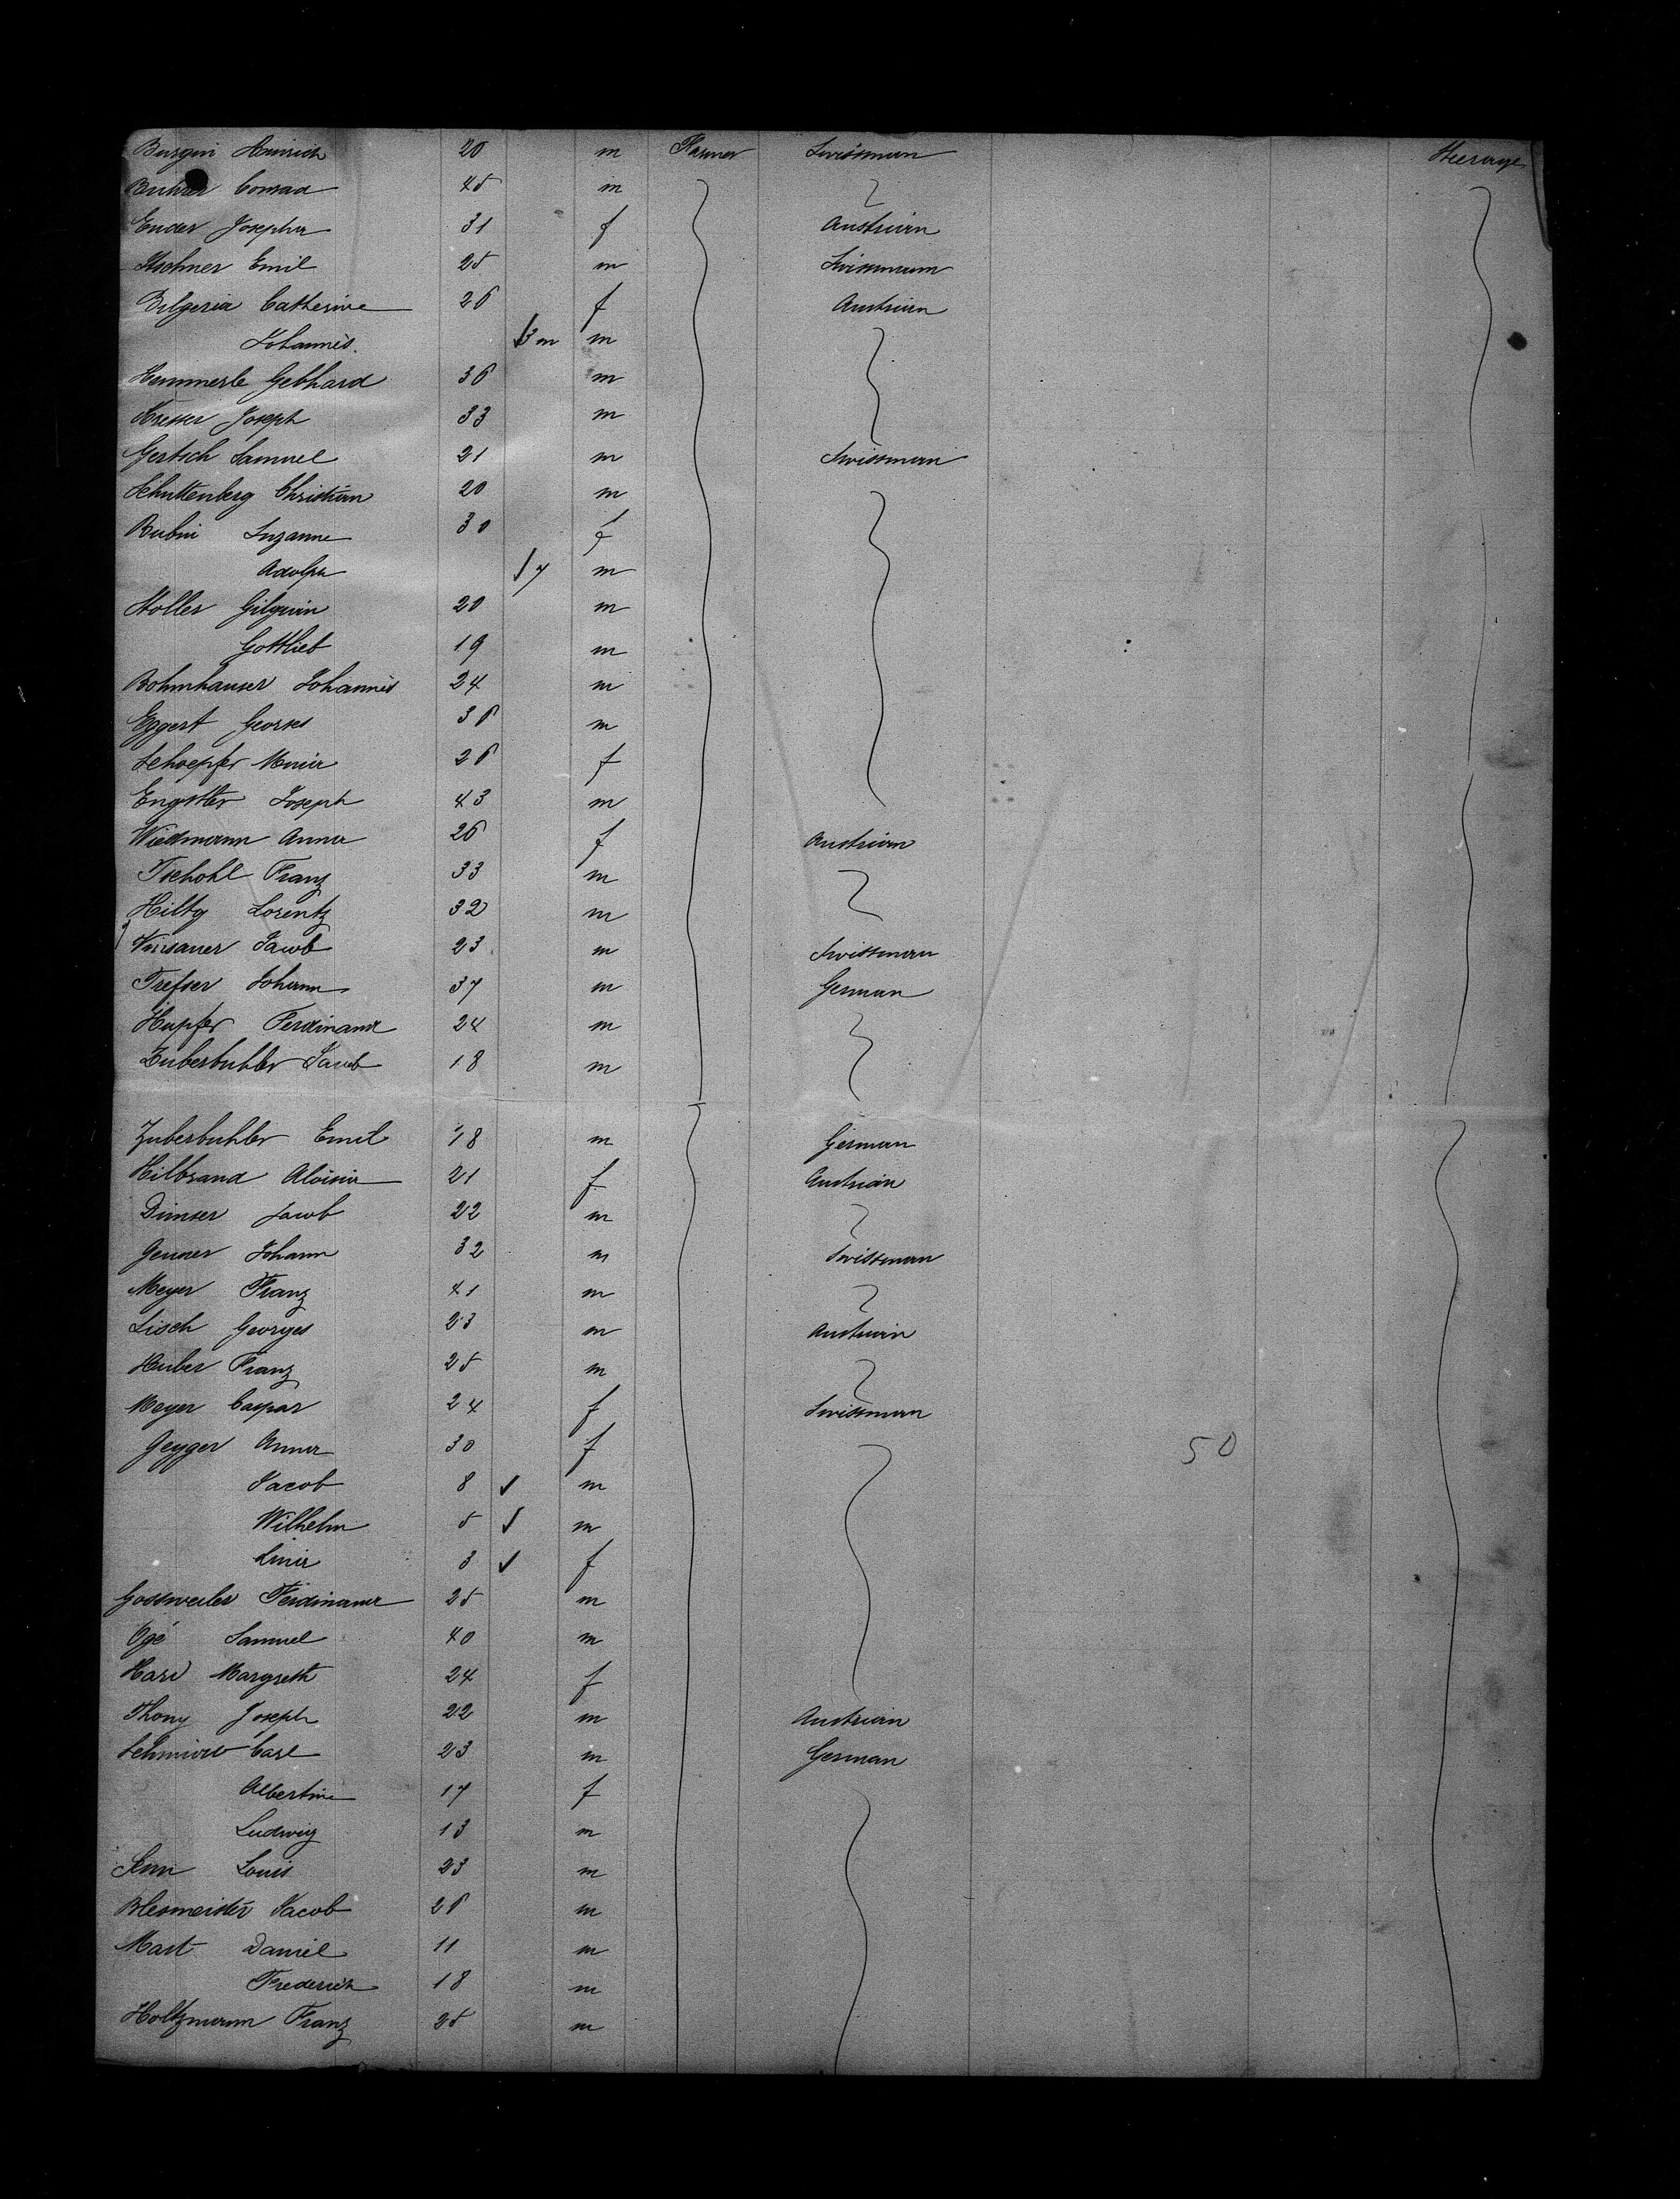 Burgin Heinrich 20 m Farmer Swissman Steerage
Buhrer Conrad 45 m
Ender Josepha 31 f Austrian
Emil 25 m Swissman
Bilgeria Catherine 26 f Austrian
Johannes. 3 m m
Hemmerle Gebhard 36 m
Kresser Joseph 33 m
Gertsch Samuel 21 m Swissman
Schuttenberg Christian 20 m
Rubin Suzanne 30 f
Adolph 7 m
Stoller Gilgain 20 m
Gottlieb 19 m
Bohnhauser Johannes 24 m
Eggert Georges 36 m
Schoepfer Maria 26 f
Engster Joseph 43 m
Wiedmann Anna 26 f Austrian
Tschohl Franz 33 m
Hilty Lorentz 32 m
Jacob 23 m Swissman
Trefser Johann 37 m German
Hupfer Ferdinand 24 m
Zuberbuhler Jacob 18 m
Zuberbuhler Emil 18 m German
Hilbrand Aloisia 21 f Austrian
Dimser Jacob 22 m
Johann 32 m Swissman
Meyer Franz 41 m
Lisch Georges 23 m Austrian
Huber Franz 25 m
Meyer Caspar 24 f Swissman
Geyger Anna 30 f 50
Jacob 8 m
Wilhelm 5 m
Lina 3 f
Gossweiler Ferdinand 25 m
Ogé Samuel 40 m
Hari Margreth 24 f
Thony Joseph 22 m Austrian
Schmidt Carl 23 m German
Albertine 17 f
Ludwig 13 m
Senn Louis 23 m
Blesmeister Jacob 26 m
Mast Daniel 11 m
Frederich 18 m
Holtzmann Franz 25 m